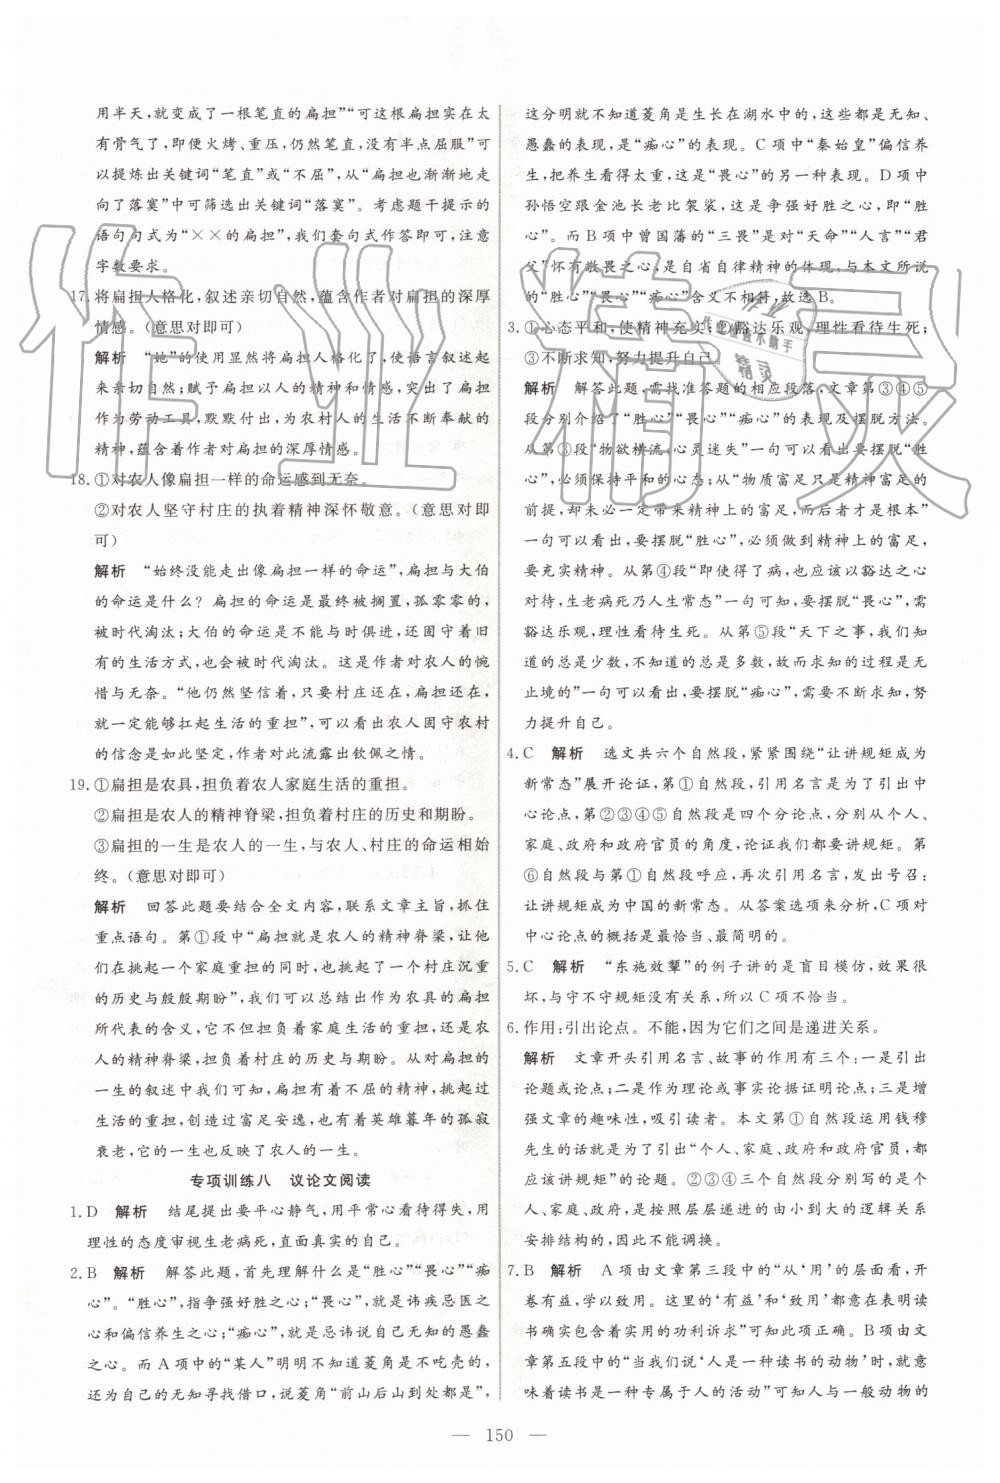 用半天,就变成了一根笔直的扁担”“可这根扁担实在太
有骨气了,即便火烤、重压,仍然笔直,没有半点屈服”可
以提炼出关键词“笔直”或“不屈”,从“扁担也渐渐地走
向了落寞”中可筛选出关键词“落寞”。考虑题干提示的
语句句式为“××的扁担”,我们套句式作答即可,注意
字数要求。
17.将扁担人格化,叙述亲切自然,蕴含作者对扁担的深厚
情感。(意思对即可)
解析 “她”的使用显然将扁担人格化了,使语言叙述起
来亲切自然;赋予扁担以人的精神和情感,突出了扁担
作为劳动工具,默默付出,为农村人的生活不断奉献的
精神,蕴含着作者对扁担的深厚情感。
18.①对农人像扁担一样的命运感到无奈。
②对农人坚守村庄的执着精神深怀敬意。(意思对即
可)
解析 “始终没能走出像扁担一样的命运”,扁担与大伯
的命运是什么?扁担的命运是最终被搁置,孤零零的,
被时代淘汰;大伯的命运是不能与时俱进,还固守着旧
有的生活方式,也会被时代淘汰。这是作者对农人的惋
惜与无奈。“他仍然坚信着,只要村庄在,扁担还在,
就一定能够扛起生活的重担”,可以看出农人固守农村
的信念是如此坚定,作者对此流露出钦佩之情。
19.①扁担是农具,担负着农人家庭生活的重担。
②扁担是农人的精神脊梁,担负着村庄的历史和期盼。
③扁担的一生是农人的一生,与农人、村庄的命运相始
终。(意思对即可)
解析 回答此题要结合全文内容,联系文章主旨,抓住
重点语句。第①段中“扁担就是农人的精神脊梁,让他
们在挑起一个家庭重担的同时,也挑起了一个村庄沉重
的历史与殷殷期盼”,我们可以总结出作为农具的扁担
所代表的含义,它不但担负着家庭生活的重担,还是农
人的精神脊梁,担负着村庄的历史与期盼。从对扁担的
一生的叙述中我们可知,扁担有着不屈的精神,挑起过
生活的重担,创造过富足安逸,也有着英雄暮年的孤寂
衰老,它的一生也反映了农人的一生。
专项训练八 议论文阅读
1.D 解析 结尾提出要平心静气,用平常心看待得失,用
理性的态度审视生老病死,直面真实的自己。
2.B 解析 解答此题,首先理解什么是“胜心”“畏心”“痴
心”。“胜心”,指争强好胜之心;“畏心”,就是讳疾忌医之
心和偏信养生之心;“痴心”,就是忌讳说自己无知的愚蠢
之心。而A项中的“某人”明明不知道菱角是不吃壳的,
还为自己的无知找借口,说菱角“前山后山到处都是”,
这分明就不知道菱角是生长在湖水中的,这些都是无知、
愚蠢的表现,是“痴心”的表现。C项中“秦始皇”偏信养
生,把养生看得太重,这是“畏心”的另一种表现。D项中
孙悟空跟金池长老比袈裟,这是争强好胜之心,即“胜
心”。而B项中曾国藩的“三畏”是对“天命”“人言”“君
父”怀有敬畏之心,是自省自律精神的体现,与本文所说
的“胜心”“畏心”“痴心”含义不相符,故选B。
3.①心态平和,使精神充实;②豁达乐观,理性看待生死;
③不断求知,努力提升自己。
解析 解答此题,需找准答题的相应段落,文章第③④⑤
段分别介绍了“胜心”“畏心”“痴心”的表现及摆脱方法。
从第③段“物欲横流,心灵迷失”一句可以看出要摆脱“胜
心”,必须保持平和的心态;从“物质富足只是精神富足的
前提,却未必一定带来精神上的富足,而后者才是根本”
一句可以看出,要摆脱“胜心”,必须做到精神上的富足,
要充实精神。从第④段“即使得了病,也应该以豁达之心
对待,生老病死乃人生常态”一句可知,要摆脱“畏心”,需
豁达乐观,理性看待生死。从第⑤段“天下之事,我们知
道的总是少数,不知道的总是多数,故而求知的过程是无
止境的”一句可以看出,要摆脱“痴心”,需要不断求知,努
力提升自己。
4.C 解析 选文共六个自然段,紧紧围绕“让讲规矩成为
新常态”展开论证,第①自然段,引用名言是为了引出中
心论点,第②③④⑤自然段是四个分论点,分别从个人、
家庭、政府和政府官员的角度,论证我们都要讲规矩。第
⑥自然段与第①自然段呼应,再次引用名言,发出号召:
让讲规矩成为中国的新常态。从答案选项来分析,C项对
中心论点的概括是最恰当、最简明的。
5.C 解析 “东施效颦”的例子讲的是盲目模仿,效果很
差,与守不守规矩没有关系,所以C项不恰当。
6.作用:引出论点。不能,因为它们之间是递进关系。
解析 文章开头引用名言、故事的作用有三个:一是引出
论题或论点;二是作为理论或事实论据证明论点;三是增
强文章的趣味性,吸引读者。本文第①自然段运用钱穆
先生的话就是为了引出“个人、家庭、政府和政府官员,都
应该讲规矩”的论题。②③④三个自然段分别论述的是
个人、家庭、政府,是按照层层递进的由小到大的逻辑关系
安排结构的,因此不能调换。
7.B 解析 A项由文章第三段中的“从‘用’的层面看,开
卷有益,学以致用。这里的‘有益’和‘致用’都意在表明读
书确实包含着现实的功利诉求”可知此项正确。B项由文
章第五段中的“当我们说‘人是一种读书的动物’时,就意
味着读书是一种专属于人的活动”可知人与一般动物的
150
作业精灵
作业
检查小助手
精灵